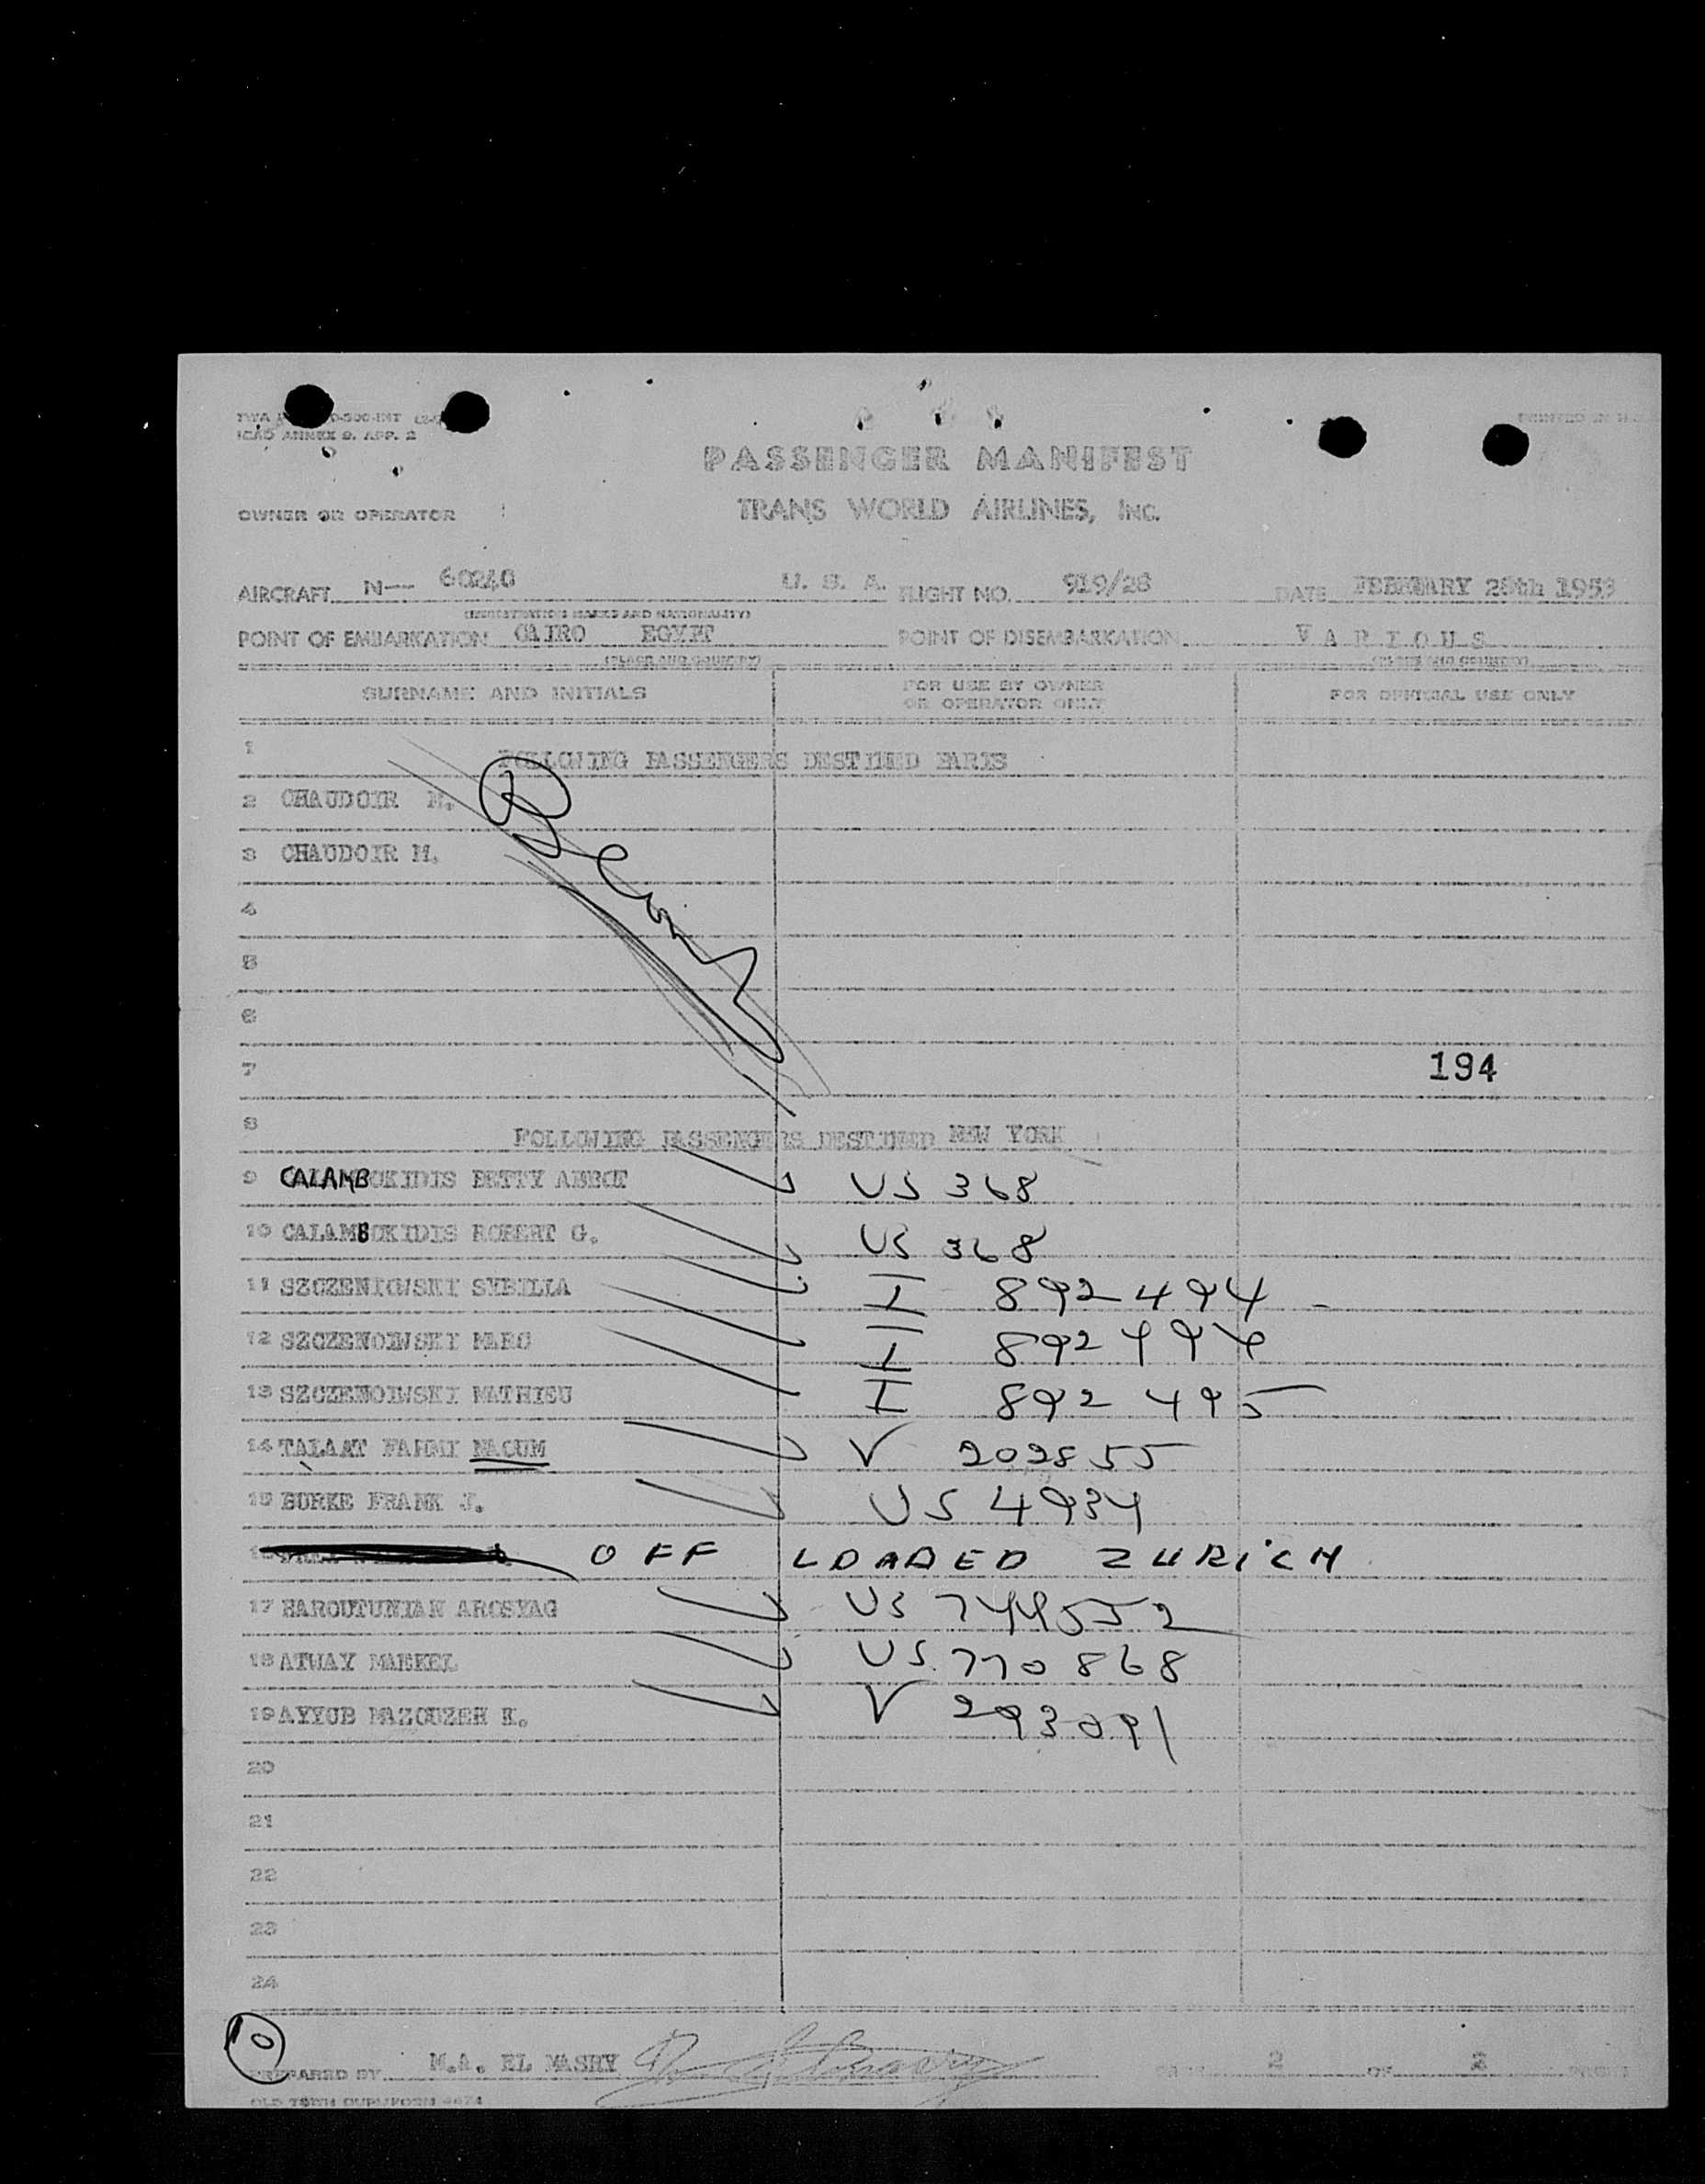 ICAO ANNEX 9. APP. 2
PRINTED IN
PASSENGER MANIFEST
OWNER OR OPERATOR TRANS WORLD AIRLINES, INC.
AIRCRAFT N-- 60240 U. S. A. FLIGHT NO. 919/28 DATE FEBRUARY 28th 1953
(REGISTRATION MARKS AND NATIONALITY)
POINT OF EMBARKATION CAIRO EGYPT POINT OF DISEMBARKATION V A R I O U S
(PLACE AND COUNTRY) (PLACE AND COUNTRY)
SURNAME AND INITIALS FOR USE BY OWNER OR OPERATOR ONLY FOR OFFICIAL USE ONLY
1 FOLLOWING PASSENGERS DESTINED PARIS
2 CHAUDOIR M.
3 CHAUDOIR M.
4
5
6
7 194
8 FOLLOWING PASSENGERS DESTINED NEW YORK
9 CALAMBOKIDIS BETTY ABBOT US 368
10 CALAMBOKIDIS ROBERT G. US 368
11 SZCZENIOWSKI SYBILLA I 892494
12 SZCZENOIWSKI MARC I 892494
13 SZCZENOIWSKI MATHIEU I 892495
14 TALAAT FAHMI NAOUM V 202855
15 BURKE FRANK J. US 4934
16 OFF LOADED ZURICH
17 HAROUTUNIAN AROSYAG US 744552
18 ATWAY MANKEL US 770868
19 AYYUB MAZOUZEH K. V 293091
20
21
22
23
24
10
PREPARED BY M.A. EL MASRY PAGE 2 OF 2 PAGES